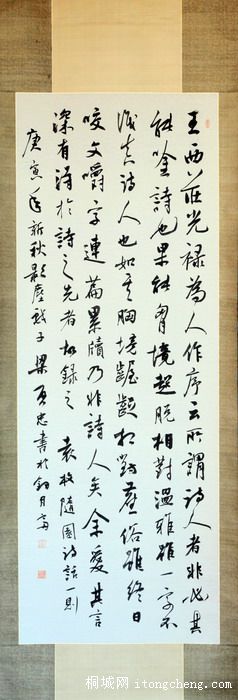 王西莊光禄為人作序云所謂詩人者非必其
能吟詩也果能胸境超脫相對溫雅雖一字不
識真詩人也如其胸境齷齪相對塵俗雖終日
咬文嚼字連篇累牘乃非詩人矣余愛其言
深有得於詩之先者故錄之 袁枚隨園詩話一則
庚寅年新秋影塵子 梁忠書於月
桐城网 itongcheng.com